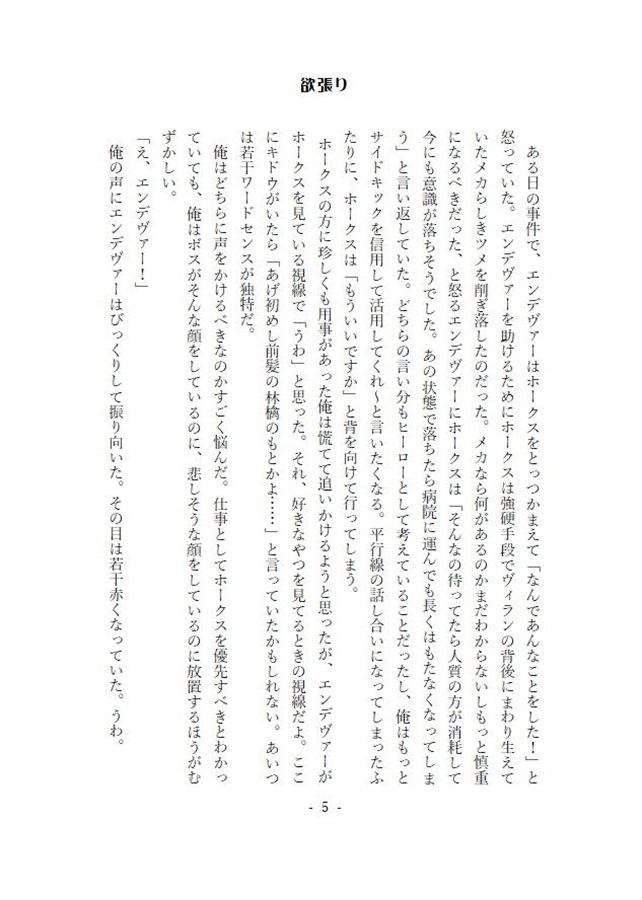 欲張り
ある日の事件で、エンデヴァーはホークスをとっつかまえて「なんであんなことをした！」と
怒っていた。エンデヴァーを助けるためにホークスは強硬手段でヴィランの背後にまわり生えて
いたメカらしきツメを削ぎ落したのだった。メカなら何があるのかまだわからないしもっと慎重
になるべきだった、と怒るエンデヴァーにホークスは「そんなの待ってたら人質の方が消耗して
今にも意識が落ちそうでした。あの状態で落ちたら病院に運んでも長くはもたなくなってしま
う」と言い返していた。どちらの言い分もヒーローとして考えていることだったし、俺はもっと
サイドキックを信用して活用してくれ～と言いたくなる。平行線の話し合いになってしまったふ
たりに、ホークスは「もういいですか」と背を向けて行ってしまう。
ホークスの方に珍しくも用事があった俺は慌てて追いかけるようと思ったが、エンデヴァーが
ホークスを見ている視線で「うわ」と思った。それ、好きなやつを見てるときの視線だよ。ここ
にキドウがいたら「あげ初めし前髪の林檎のもとかよ……」と言っていたかもしれない。あいつ
は若干ワードセンスが独特だ。
俺はどちらに声をかけるべきなのかすごく悩んだ。仕事としてホークスを優先すべきとわかっ
ていても、俺はボスがそんな顔をしているのに、悲しそうな顔をしているのに放置するほうがむ
ずかしい。
「え、エンデヴァー！」
俺の声にエンデヴァーはびっくりして振り向いた。その目は若干赤くなっていた。うわ。
- 5 -